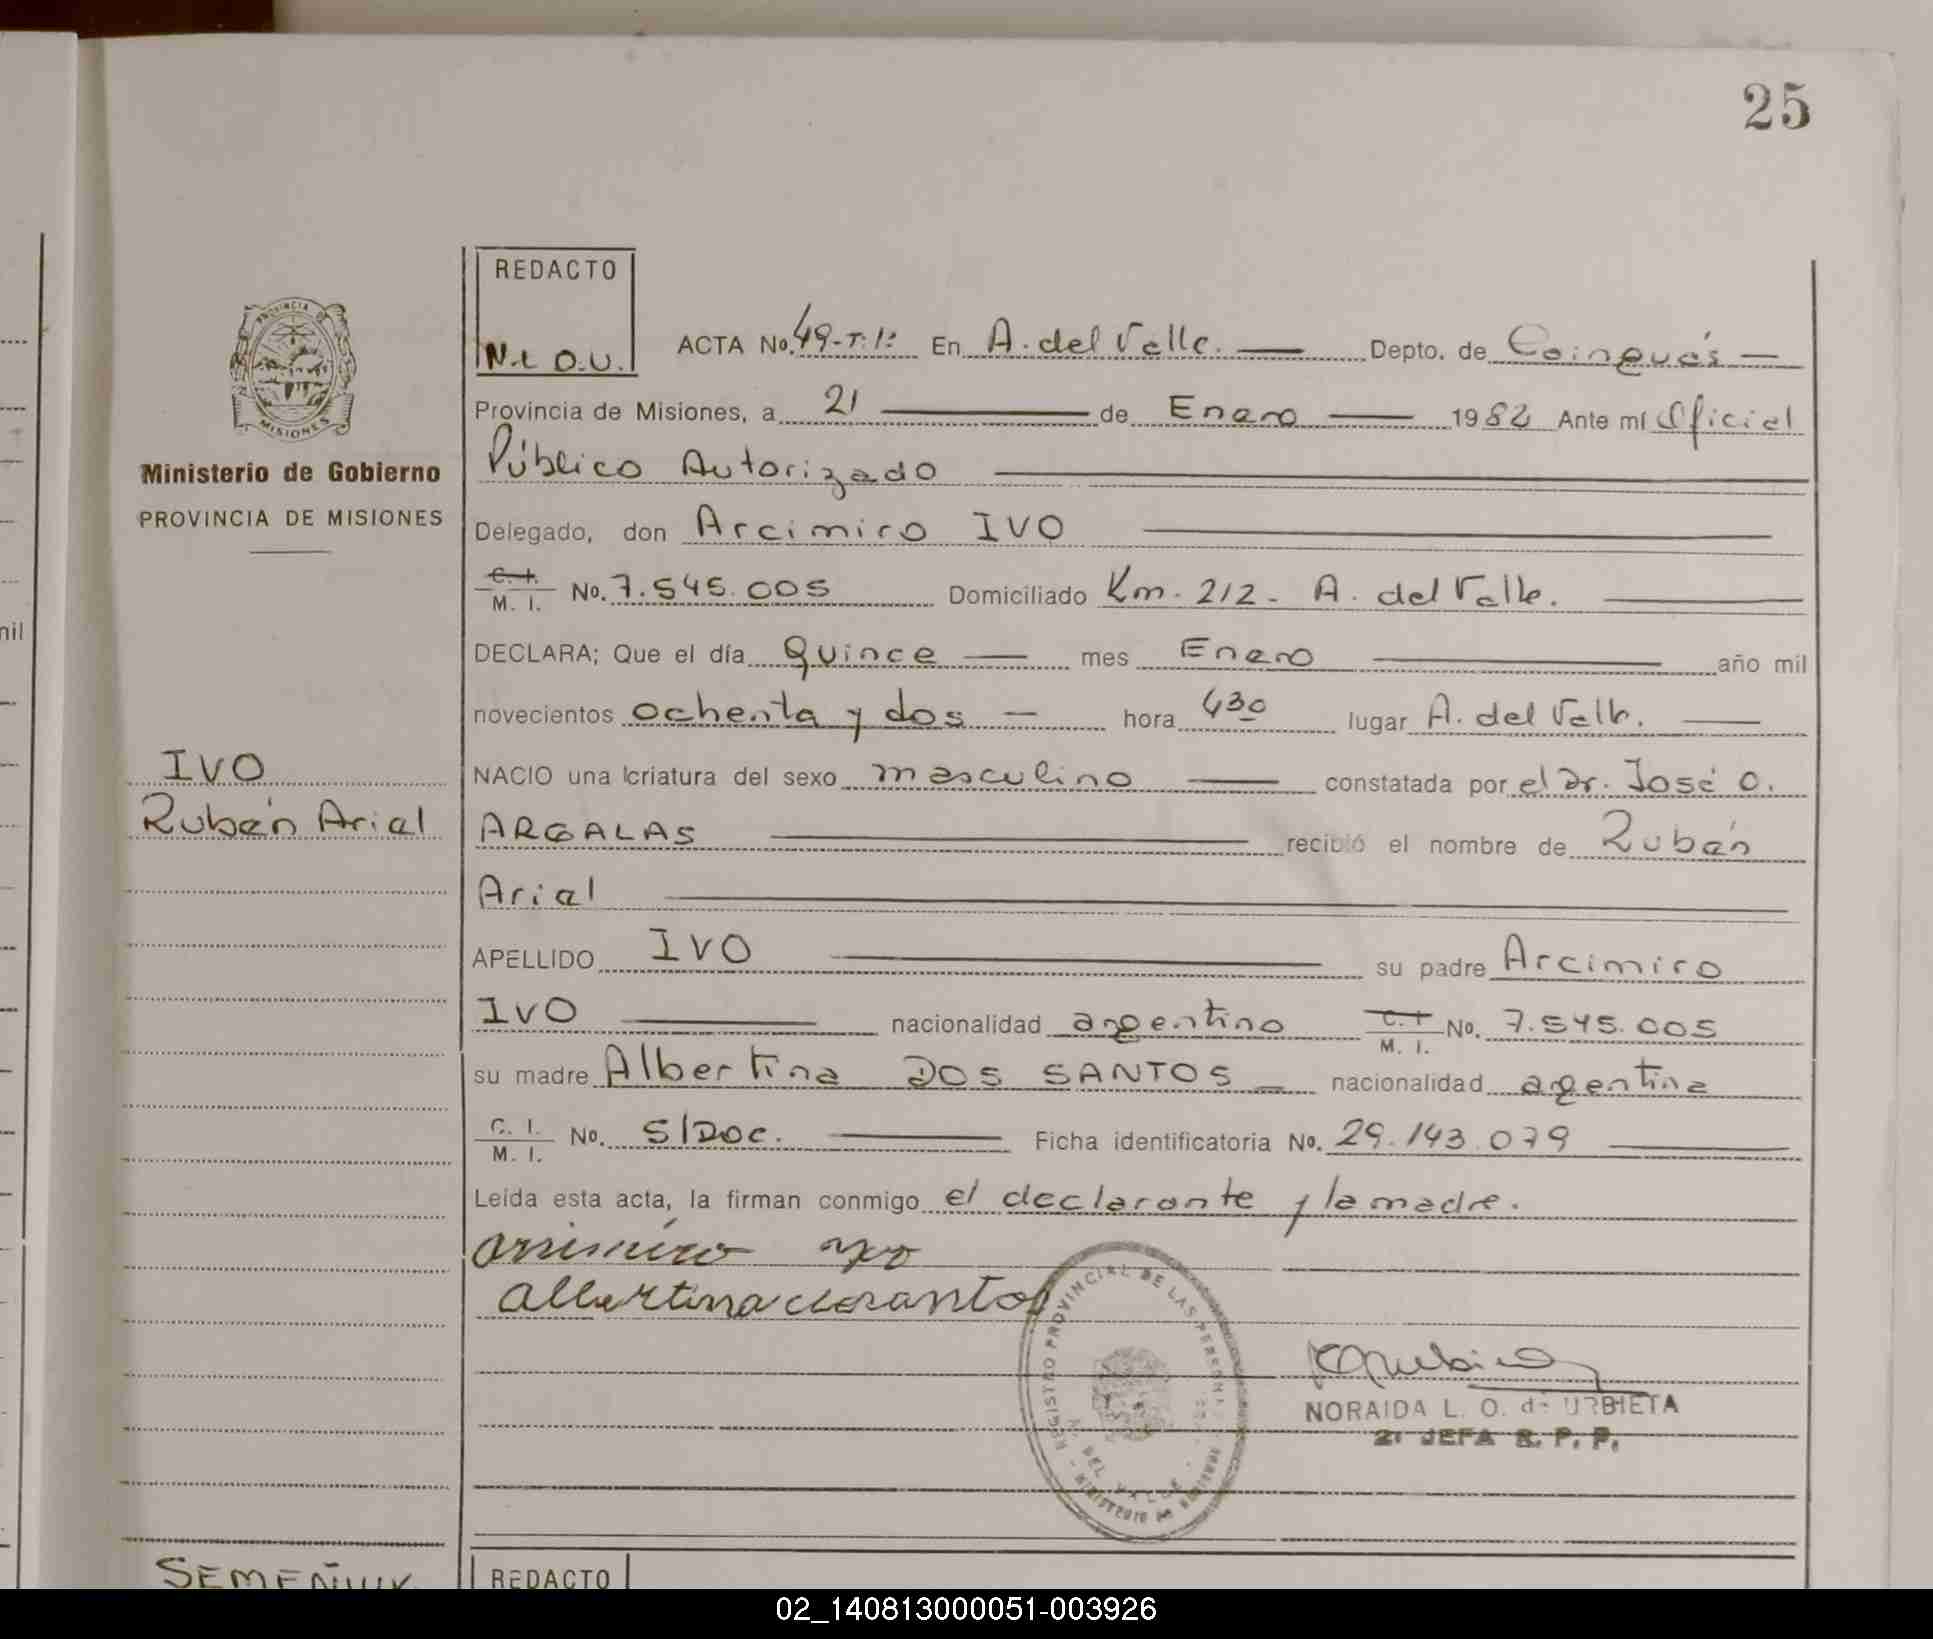 25
REDACTO
N.L O.U.
ACTA No. 49-T:1: En A. del Valle. Depto. de Cainguás
PROVINCIA DE MISIONES
Provincia de Misiones, a 21 de Enero 1982 Ante mí Oficial
Público Autorizado
Ministerio de Gobierno
PROVINCIA DE MISIONES
Delegado, don Arcimiro IVO
C. I. M. I. No. 7.545.005 Domiciliado Km. 212 - A. del Valle.
nil
DECLARA; Que el día Quince mes Enero año mil
novecientos ochenta y dos hora 430 lugar A. del Valle.
IVO
Rubén Arial
NACIO una criatura del sexo masculino constatada por el Dr. José O.
ARGALAS recibió el nombre de Rubén
Arial
APELLIDO IVO su padre Arcimiro
IVO nacionalidad argentino C. I. M. I. No. 7.545.005
su madre Albertina DOS SANTOS nacionalidad argentina
C. I. M. I. No. S/Doc. Ficha identificatoria No. 29.143.079
Leída esta acta, la firman conmigo el declarante y la madre.
REGISTRO PROVINCIAL DE LAS PERSONAS
A. DEL VALLE
MINISTERIO DE GOBIERNO
NORAIDA L. O. de URBIETA
2: JEFA R. P. P.
SEMEÑIUK
REDACTO
02_140813000051-003926